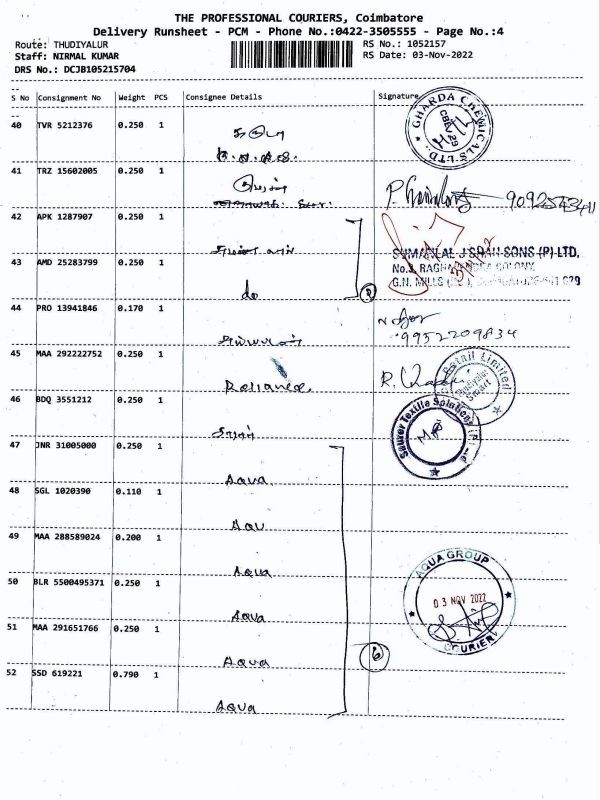 THE PROFESSIONAL COURIERS, Coimbatore
Delivery Runsheet - PCM - Phone No.:0422-3505555 - Page No.:4
Route: THUDIYALUR RS No.: 1052157
Staff: NIRMAL KUMAR RS Date: 03-Nov-2022
DRS No.: DCJB105215704
S No Consignment No Weight PCS Consignee Details Signature
40 TVR 5212376 0.250 1
GHARDA CHEMICALS LTD.,
41 TRZ 15602005 0.250 1
42 APK 1287907 0.250 1
43 AMD 25283799 0.250 1
do
2
SUMANLAL J SHAH SONS (P) LTD,
44 PRO 13941846 0.170 1
9952209834
45 MAA 292222752 0.250 1
Reliance
Retail Limited
Smart
46 BDQ 3551212 0.250 1
Saurer Textile Solutions (P) Ltd
47 JNR 31005000 0.250 1
Aqua
48 SGL 1020390 0.110 1
Aqu
49 MAA 288589024 0.200 1
Aqua
50 BLR 5500495371 0.250 1
Aqua
AQUA GROUP
03 NOV 2022
COURIER
51 MAA 291651766 0.250 1
Aqua
6
52 SSD 619221 0.790 1
Aqua